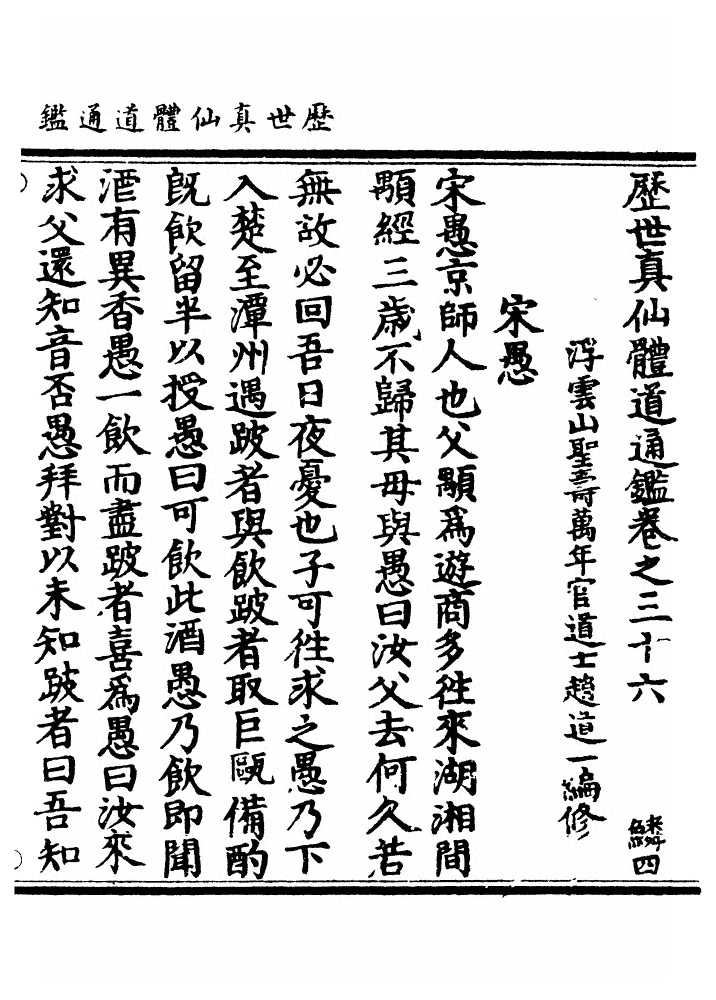 歷世真仙體道通鑑
歷世真仙體道通鑑卷之三十六 鱗四
浮雲山聖壽萬年宮道士趙道一編修
宋愚
宋愚京師人也父顒爲遊商多往來湖湘間
顒經三歲不歸其母與愚曰汝父去何久若
無故必回吾日夜憂也子可往求之愚乃下
入楚至潭州遇跛者與飲跛者取巨甌備酌
既飲留半以授愚曰可飲此酒愚乃飲即聞
酒有異香愚一飲而盡跛者喜爲愚曰汝來
求父還知音否愚拜對以未知跛者曰吾知